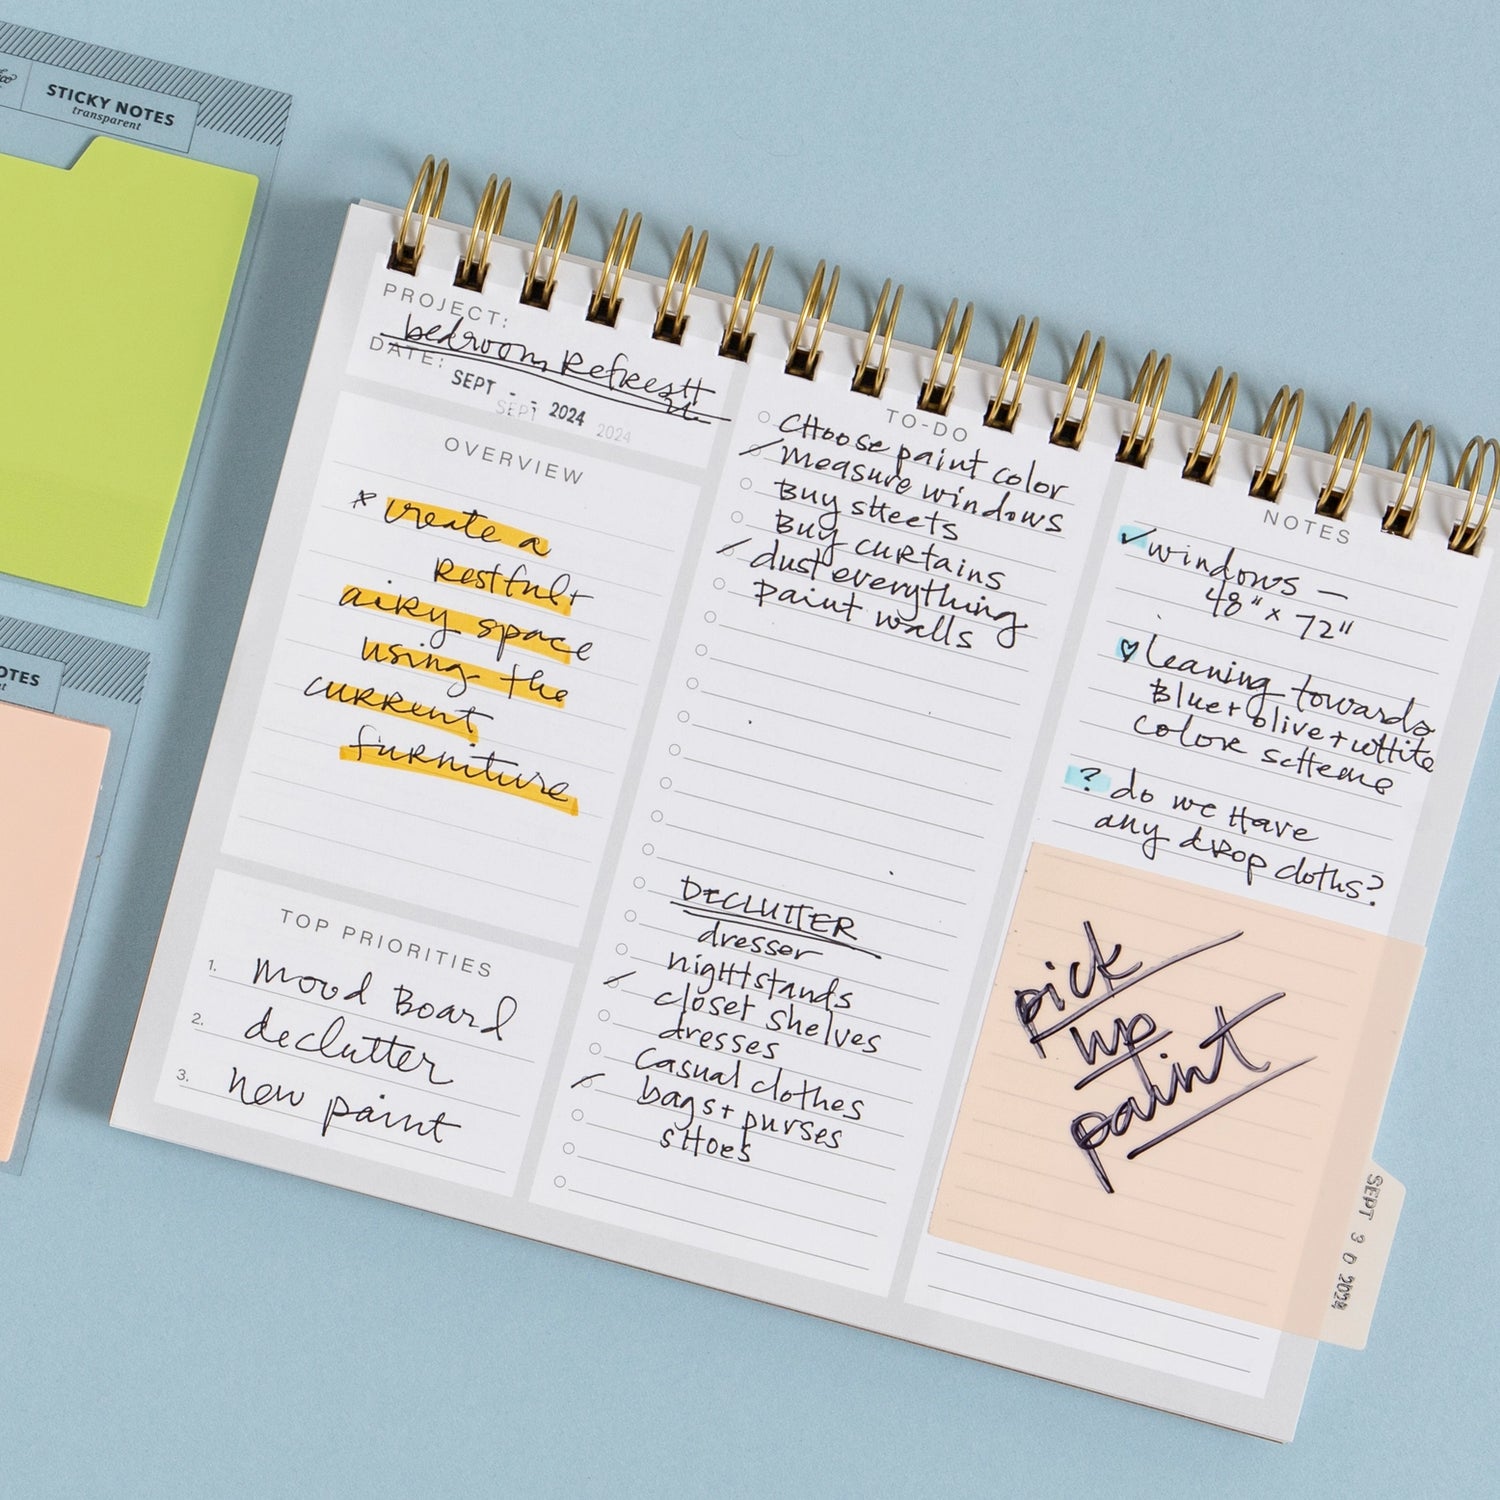 STICKY NOTES
transparent
OTES
PROJECT:
bedroom Refresh
DATE:
SEPT - - 2024
SEPT 2024
OVERVIEW
* create a
restful +
airy space
using the
current
furniture
TOP PRIORITIES
1. Mood Board
2. declutter
3. New paint
TO-DO
Choose paint color
measure windows
Buy sheets
Buy curtains
dust everything
paint walls
DECLUTTER
dresser
nightstands
closet shelves
dresses
Casual clothes
bags + purses
shoes
NOTES
✓ windows —
48" x 72"
♡ leaning towards
Blue + olive + white
color scheme
? do we have
any drop cloths?
pick
up
paint
SEPT 30 2024